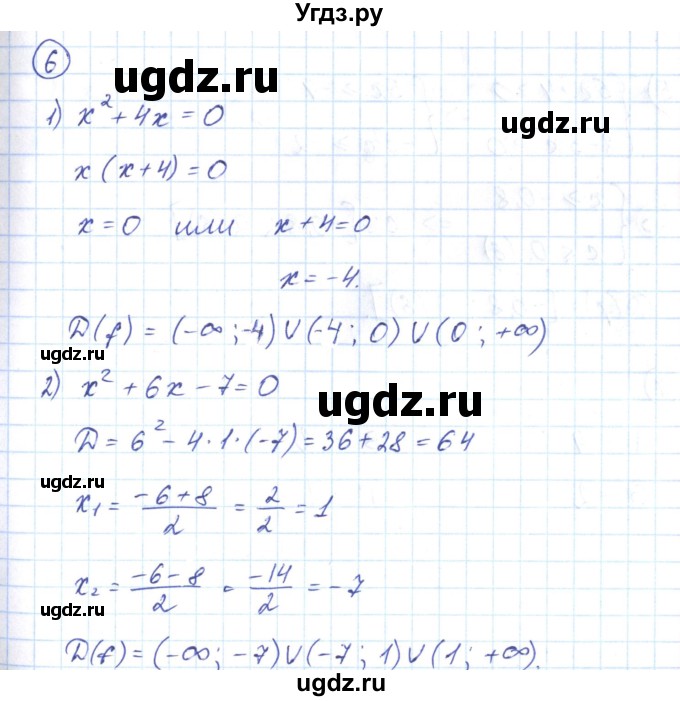 Угдз.ру
6
ugdz.ru
1) x² + 4x = 0
ugdz.ru
x (x+4) = 0
x = 0 или x + 4 = 0
x = -4.
D(f) = (-∞ ; -4) U (-4 ; 0) U (0 ; +∞)
ugdz.ru
2) x² + 6x - 7 = 0
ugdz.ru
D = 6² - 4 · 1 · (-7) = 36 + 28 = 64
ugdz.ru
x₁ = (-6+8)/2 = 2/2 = 1
x₂ = (-6-8)/2 = -14/2 = -7
ugdz.ru
D(f) = (-∞; -7) U (-7 ; 1) U (1 ; +∞).
ugdz.ru